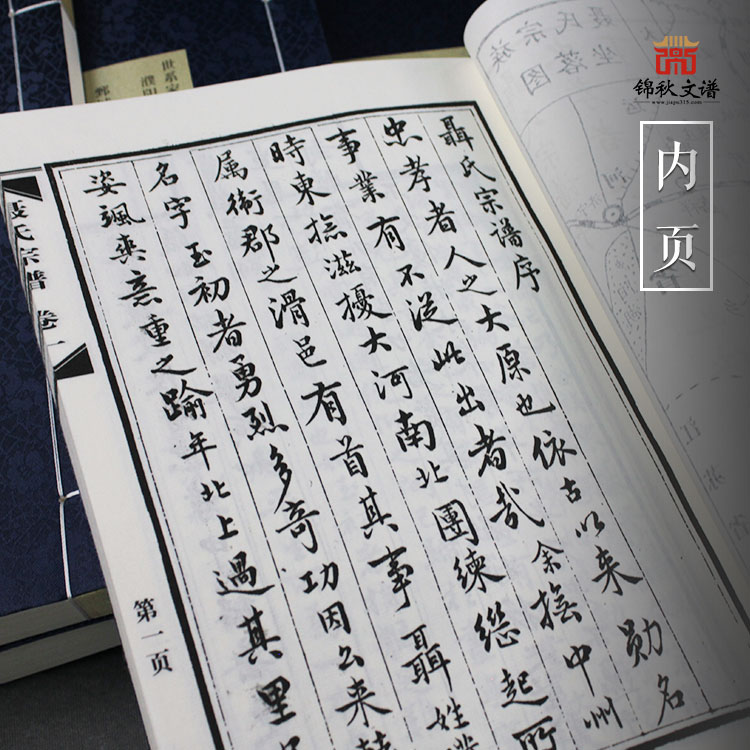 聂氏宗族
坐落图
锦秋文谱
www.jiapu315.com
内页
聶氏宗譜序
忠孝者人之大原也依古以来勋名
事業有不从此出者哉余撫中州
時東捻滋擾大河南北團練继起所
属衛郡之滑邑有首其事聶姓
名字玉初者勇烈多奇功因公来
姿颯爽意重之踰年北上過其里
氏宗譜 卷一
第一页
河
江